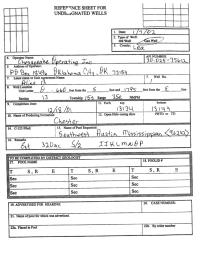 REFERENCE SHEET FOR
UNDESIGNATED WELLS
1. Date: 1/9/02
2. Type of Well:
Oil Well Gas Well
3. County: Lea
4. Operator
Chesapeake Operating Inc
API NUMBER
30-025-
5. Address of Operator
PO Box Oklahoma City, OK
6. Lease name or Unit Agreement Name
7. Well No.
1
8. Well Location
Unit Letter 660 feet from the S line and feet from the E line
Section 13 Township 15S Range 35E NMPM
9. Completion Date:
12/18/01
11. Perfs top bottom
13134
10. Name of Producing Formation
Chester
12. Open Hole casing shoe (MTD or TD)
14. C-123 filed
13. Name of Pool Requested
Southwest Austin Mississippian
16. Remarks
Ext 320ac S/2 IJKLMNOP
TO BE COMPLETED BY DISTRICT GEOLOGIST
17. POOL NAME
18. POOL ID #
T S, R E T S, R E T S, R E
Sec Sec Sec
Sec Sec Sec
Sec Sec Sec
19. ADVERTISED FOR HEARING
20. CASE NUMBER:
21. Name of pool for which was advertised
22a. Placed in Pool
22b. By order number